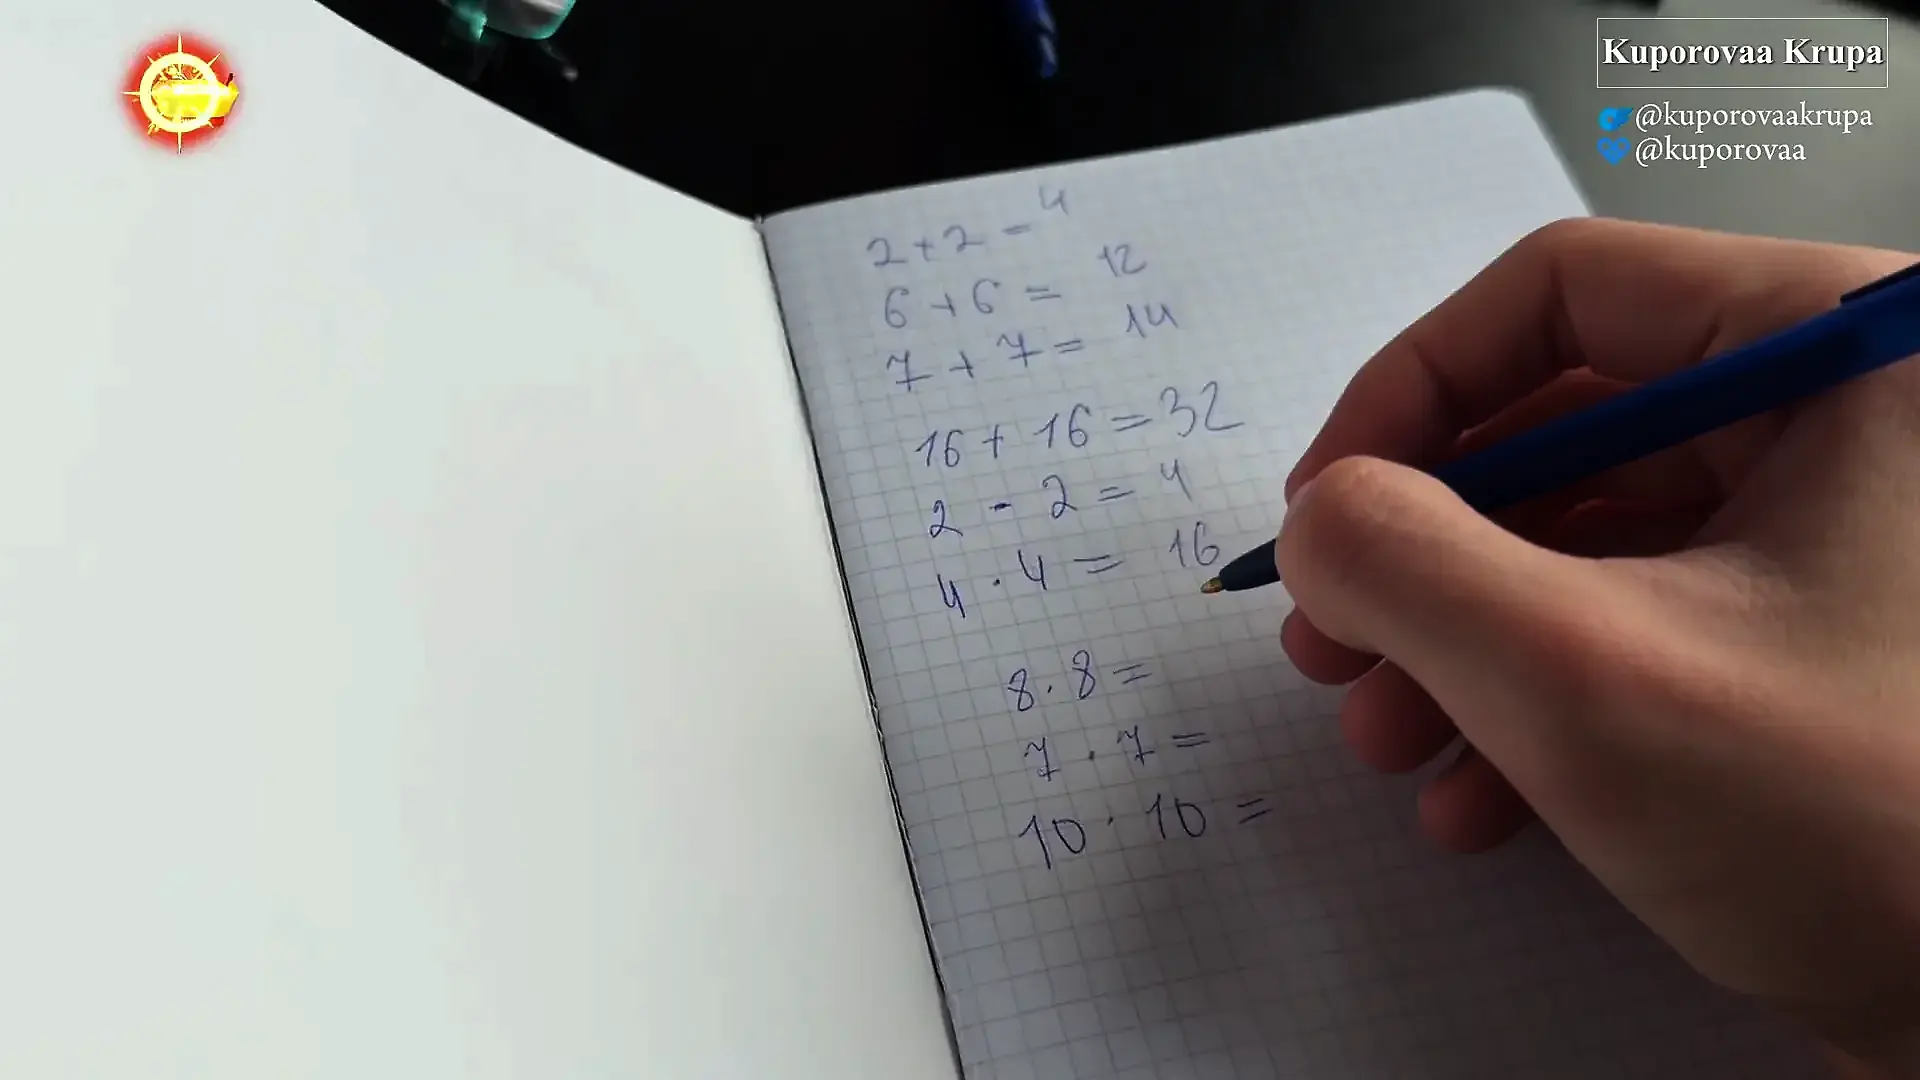 Kuporovaa Krupa
@kuporovaakrupa
@kuporovaa
2 + 2 = 4
6 + 6 = 12
7 + 7 = 14
16 + 16 = 32
2 - 2 = 4
4 · 4 = 16
8 · 8 =
7 · 7 =
10 · 10 =